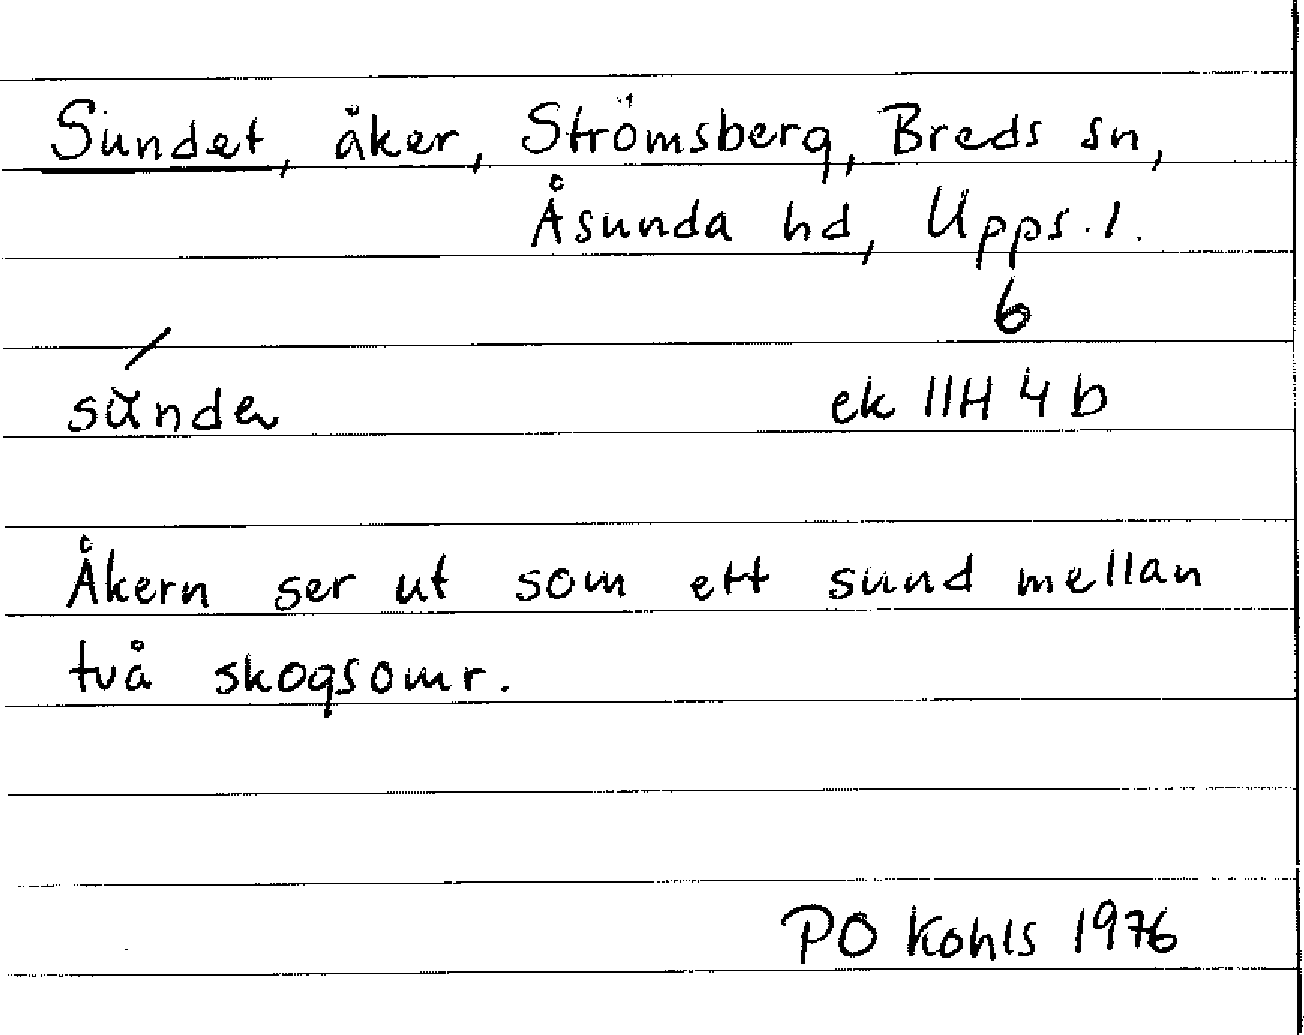 Sundet, åker, Strömsberg, Breds sn,
Åsunda hd, Upps. l.
6
ek 11H 4b
Åkern ser ut som ett sund mellan
två skogsomr.
PO Kohls 1976